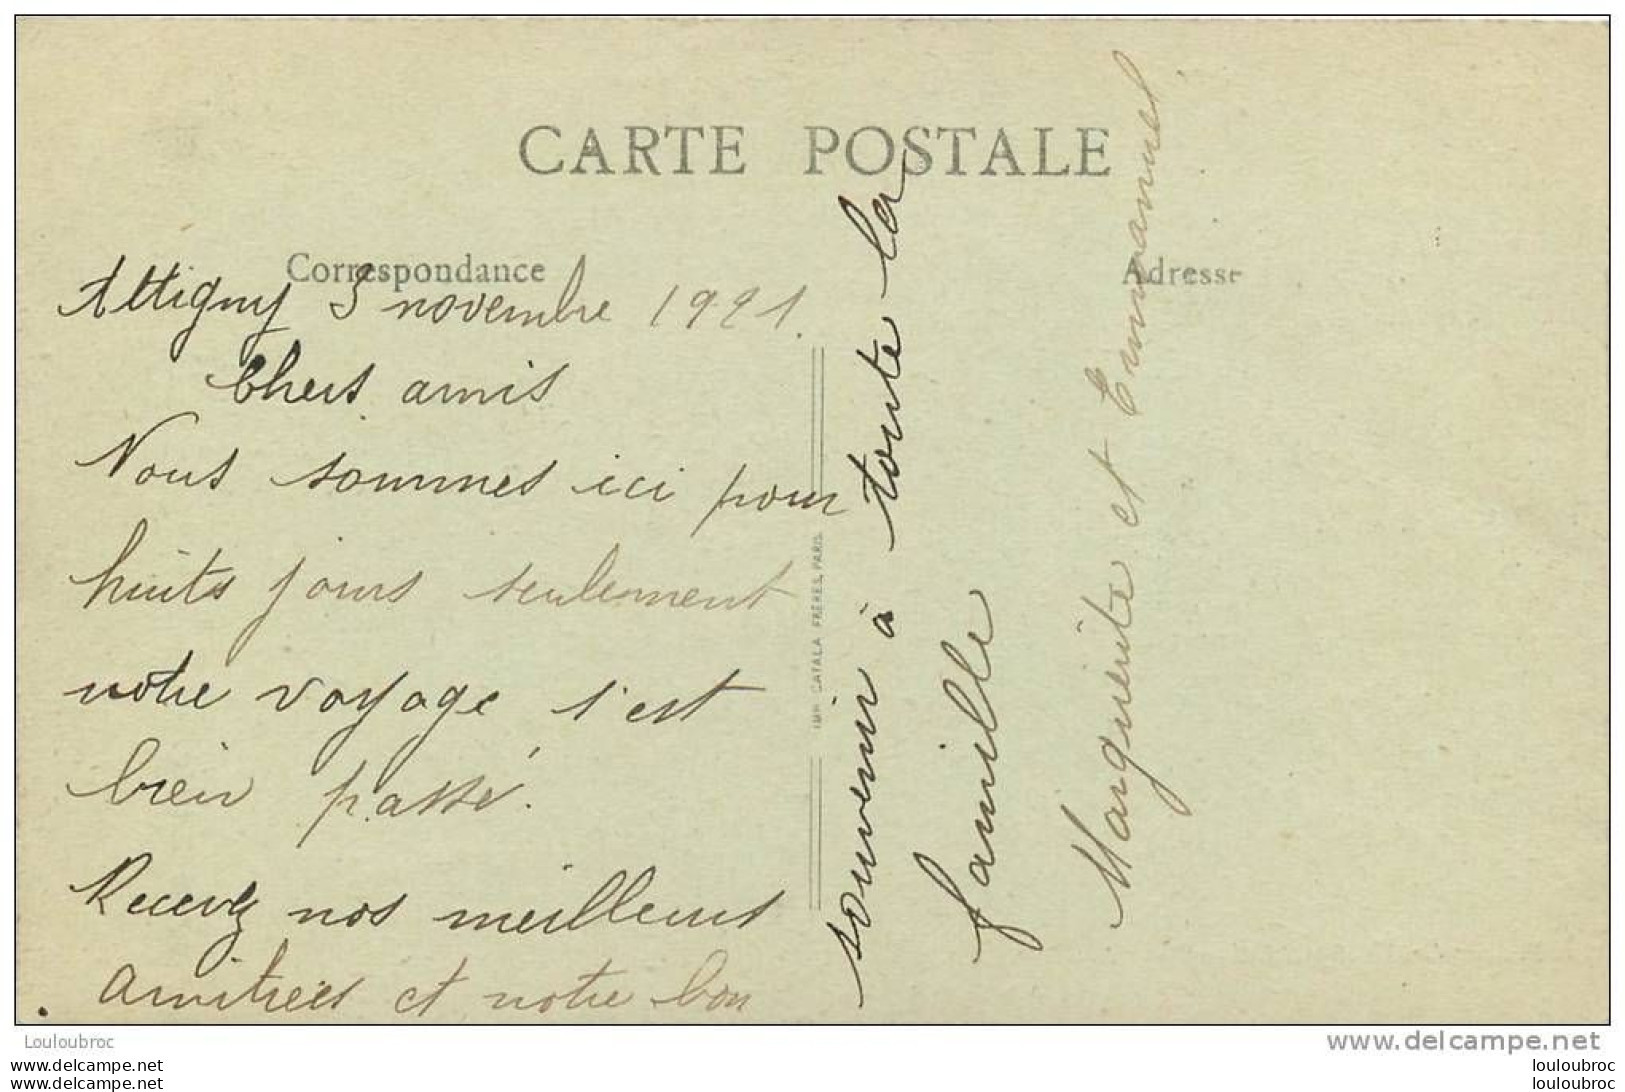 CARTE POSTALE
Correspondance
Adresse
Attigny 3 novembre 1921.
Chers amis
Nous sommes ici pour
huits jours seulement
notre voyage s'est
bien passé.
Recevez nos meilleurs
amitiées et notre bon
souvenir à toute la
famille
Marguerite et Emmanuel
IMP. CATALA FRÈRES, PARIS
Louloubroc
delcampe.net
louloubroc
louloubroc
louloubroc
louloubroc